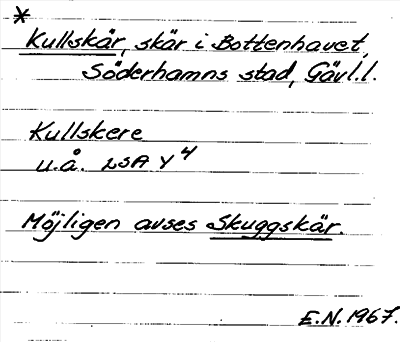 *
Kullskär, skär i Bottenhavet,
Söderhamns stad, Gävl.l.
Kullskere
u.å. LSA Y4
Möjligen avses Skuggskär.
E.N. 1967.